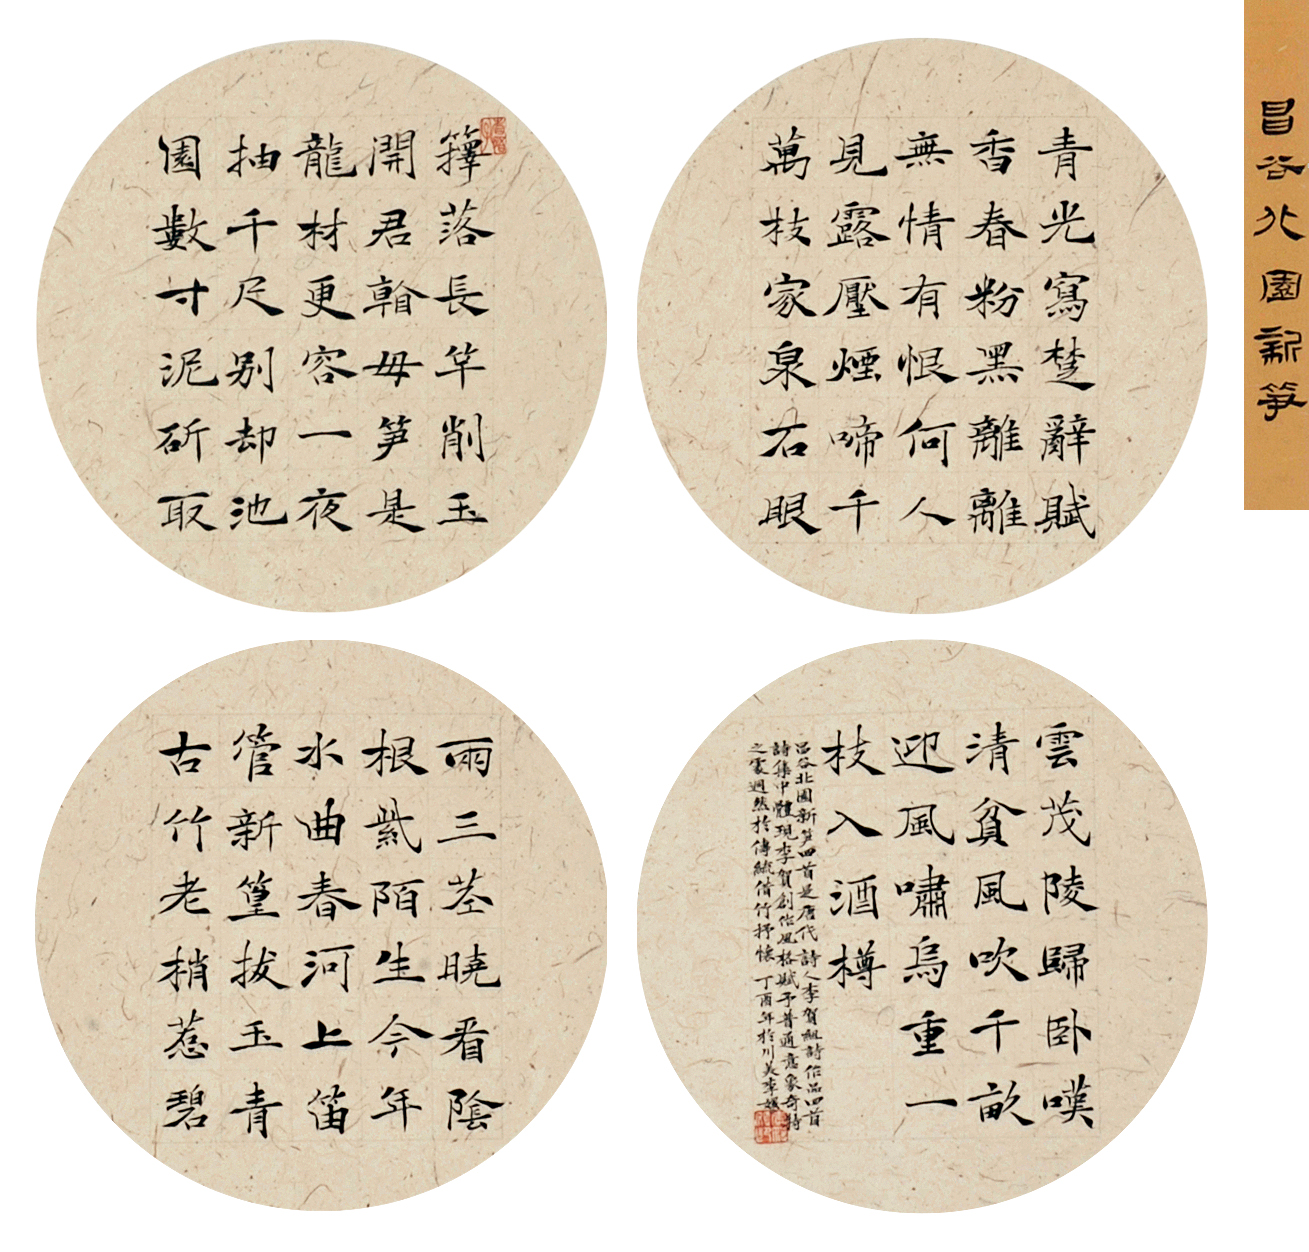 昌谷北園新笋
籜落長竿削玉
開君翰母笋是
龍材更容一夜
抽千尺别却池
園數寸泥斫取
青光寫楚辭賦
香春粉黑離離
無情有恨何人
見露壓煙啼千
萬枝家泉石眼
兩三莖曉看陰
根紫陌生今年
水曲春河上笛
管新篁拔玉青
古竹老梢惹碧
雲茂陵歸卧嘆
清貧風吹千畝
迎風嘯烏重一
枝入酒樽
昌谷北園新笋四首是唐代詩人李賀組詩作品四首
詩集中體現李賀創作風格賦予普通意象奇特
之處迥然於傳統借竹抒懷 丁酉年於川美李